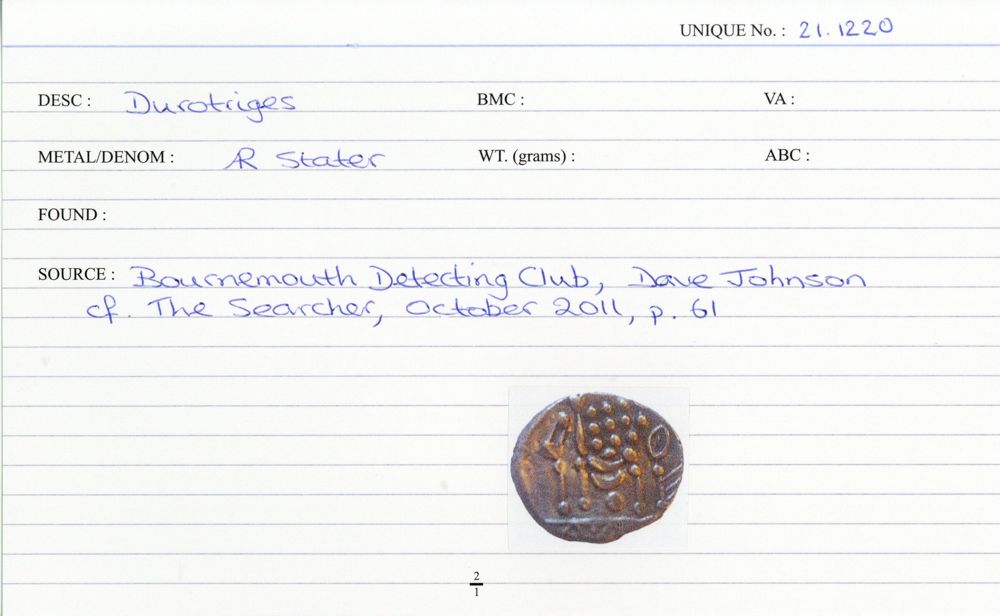 UNIQUE No. : 21.1220
DESC : Durotriges BMC : VA :
METAL/DENOM : AR Stater WT. (grams) : ABC :
FOUND :
SOURCE : Bournemouth Detecting Club, Dave Johnson
cf. The Searcher, October 2011, p. 61
2
1